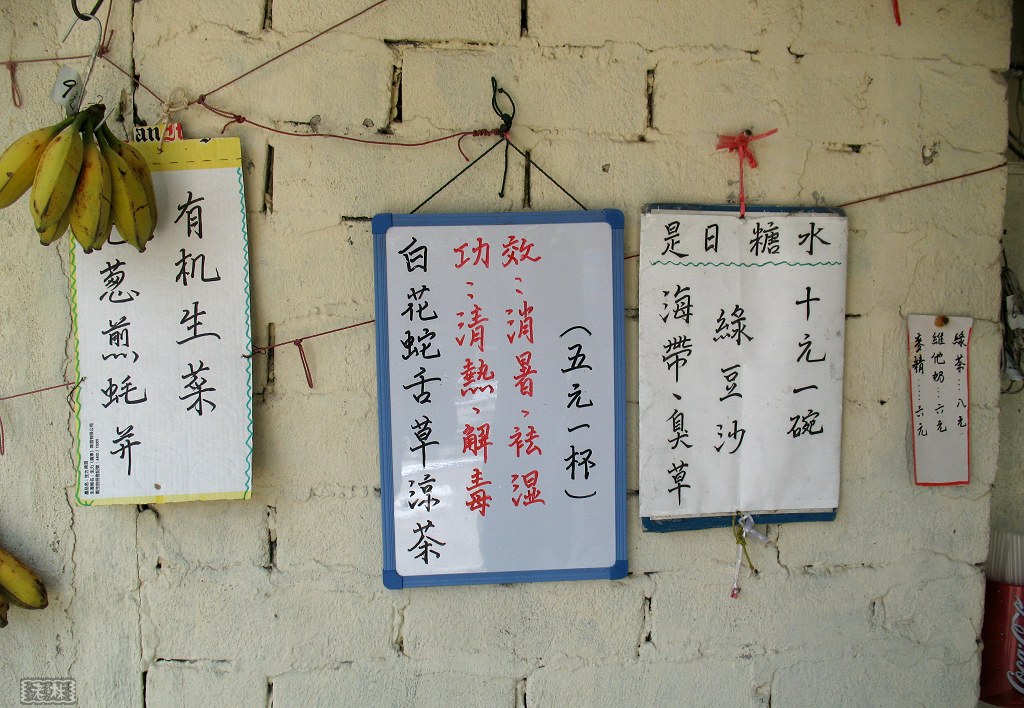 有机生菜
葱煎蚝并
白花蛇舌草涼茶
功:清熱、解毒
效:消暑、祛湿
(五元一杯)
是日糖水
海帶、臭草
綠豆沙
十元一碗
綠茶....八元
維他奶...六元
麥精.....六元
Coca-Cola
老林
9